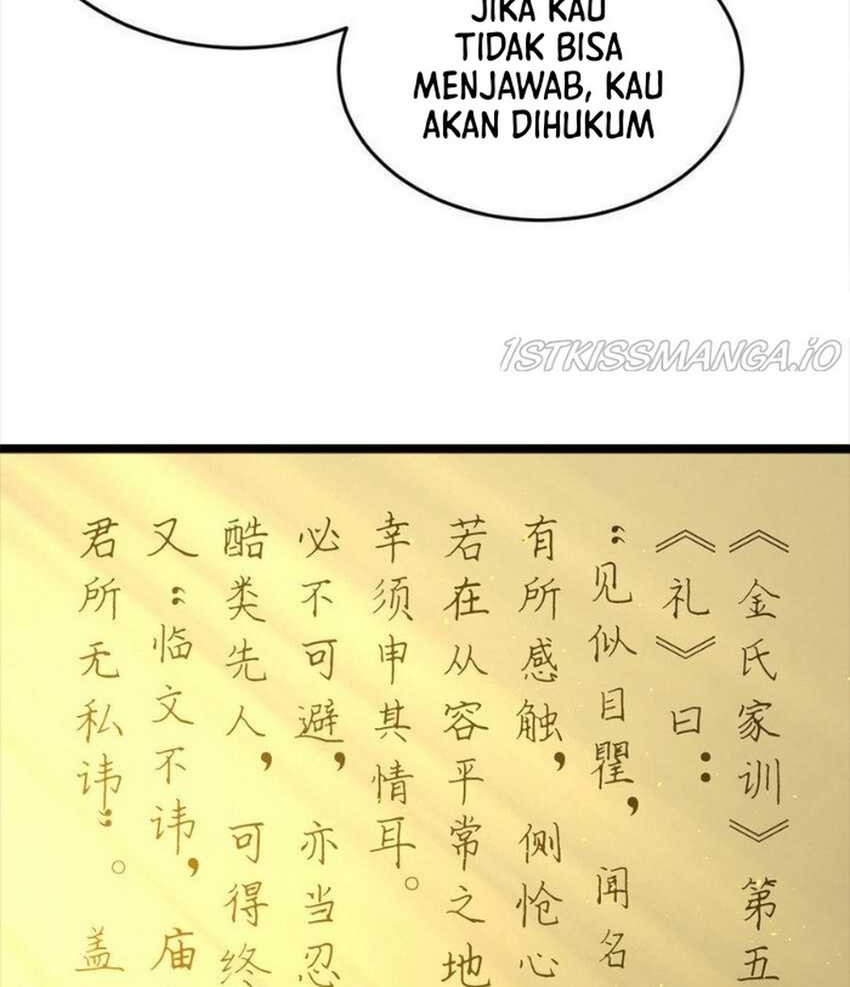 JIKA KAU
TIDAK BISA
MENJAWAB, KAU
AKAN DIHUKUM
1STKISSMANGA.IO
《金氏家训》第五
《礼》曰：
：见似目瞿，闻名
有所感触，侧怆心
若在从容平常之地
幸须申其情耳。
必不可避，亦当忍
酷类先人，可得终
又：临文不讳，庙
君所无私讳：。盖